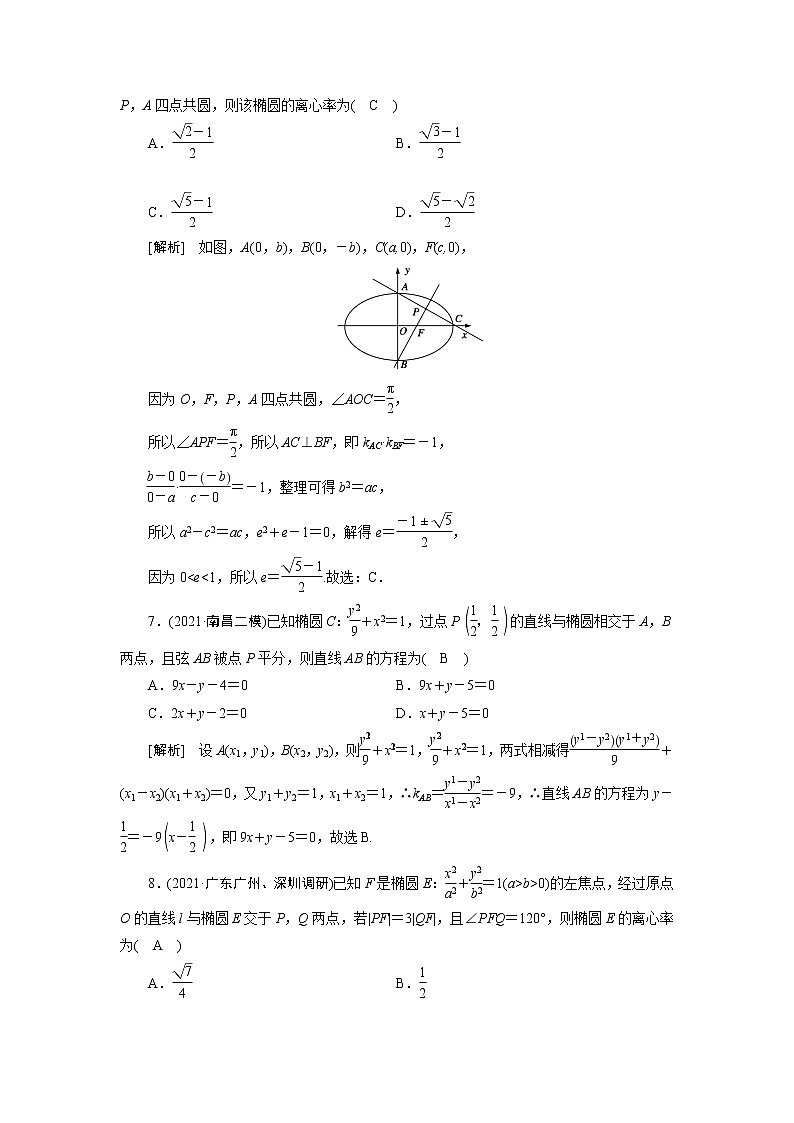 P，A四点共圆，则该椭圆的离心率为(　C　)
A．(√2－1)/2　B．(√3－1)/2
C．(√5－1)/2　D．(√5－√2)/2
[解析]　如图，A(0，b)，B(0，－b)，C(a,0)，F(c,0)，
y
A
P
C
O
F
x
B
因为O，F，P，A四点共圆，∠AOC＝π/2，
所以∠APF＝π/2，所以AC⊥BF，即kAC·kBF＝－1，
(b－0)/(0－a)·(0－(－b))/(c－0)＝－1，整理可得b2＝ac，
所以a2－c2＝ac，e2＋e－1＝0，解得e＝(－1±√5)/2，
因为0<e<1，所以e＝(√5－1)/2.故选：C．
7．(2021·南昌二模)已知椭圆C：y2/9＋x2＝1，过点P(1/2，1/2)的直线与椭圆相交于A，B
两点，且弦AB被点P平分，则直线AB的方程为(　B　)
A．9x－y－4＝0　B．9x＋y－5＝0
C．2x＋y－2＝0　D．x＋y－5＝0
[解析]　设A(x1，y1)，B(x2，y2)，则y2/9＋x2＝1，y2/9＋x2＝1，两式相减得(y1－y2)(y1＋y2)/9＋
(x1－x2)(x1＋x2)＝0，又y1＋y2＝1，x1＋x2＝1，∴kAB＝(y1－y2)/(x1－x2)＝－9，∴直线AB的方程为y－
1/2＝－9(x－1/2)，即9x＋y－5＝0，故选B.
8．(2021·广东广州、深圳调研)已知F是椭圆E：x2/a2＋y2/b2＝1(a>b>0)的左焦点，经过原点
O的直线l与椭圆E交于P，Q两点，若|PF|＝3|QF|，且∠PFQ＝120°，则椭圆E的离心率
为(　A　)
A．√7/4　B．1/2